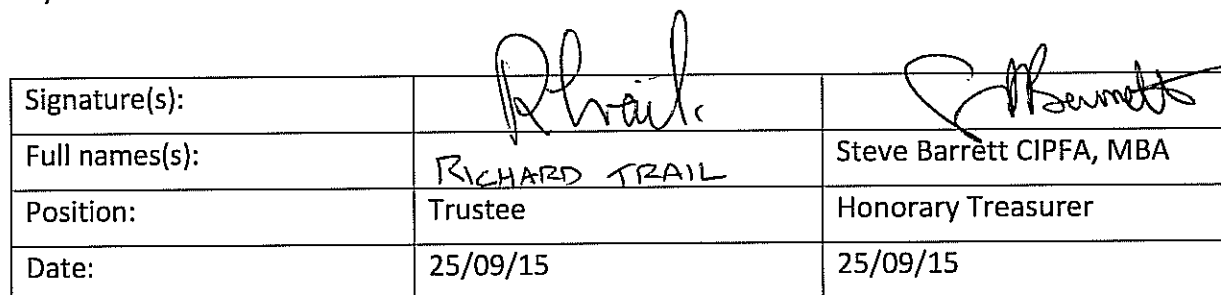 Signature(s): RTrail. SBarrett
Full names(s): RICHARD TRAIL Steve Barrett CIPFA, MBA
Position: Trustee Honorary Treasurer
Date: 25/09/15 25/09/15